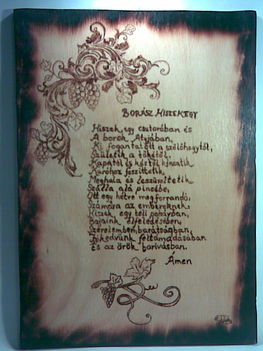 BORÁSZ HISZEKEGY
Hiszek egy csutorában és
A borok Atyjában,
Ki fogantatott a szőlőhegytől,
Születik a tőkétől,
Kapától és késtől kínzatik
Karóhoz feszíttetik,
Meghala és leszűrttetik
Szálla alá pincébe,
Ott egy hétre megforrandó,
Számára az embereknek.
Hiszek egy teli pohárban,
Bajaink elfeledésben,
Szerelemben, barátságban,
Jókedvünk feltámadásában
És az örök borivásban.
Ámen